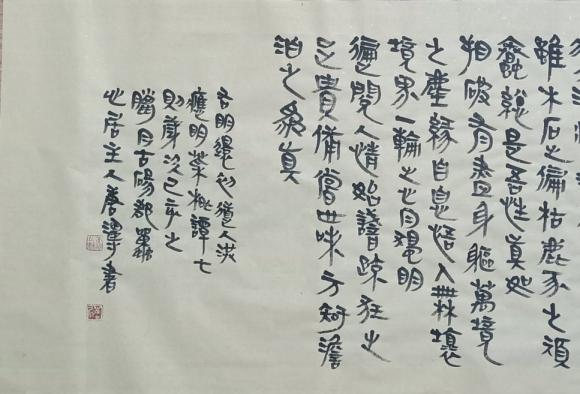 雖木石之偏枯鹿豕之頑
蠢就是吾性真如
相破有盡身軀萬境
之塵緣自息悟入無壞
境界一輪之心月獨明
遍閱人情始識疏狂之
足貴備嘗世味方知澹
泊之為真
右明還初道人洪
應明菜根譚七
則歲次己亥之
臘月古陽郡墨
心居主人唐澤書